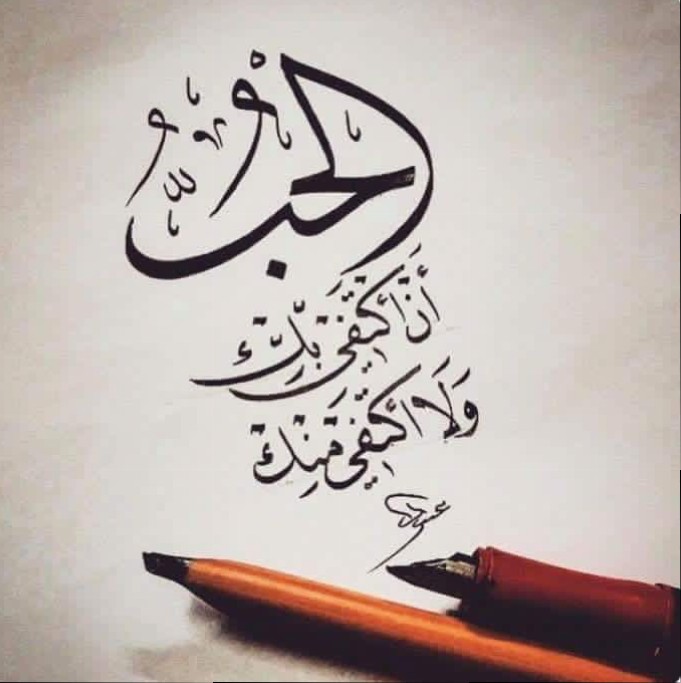 الحُبُّ
أن أكتفي بك
ولا أكتفي منك